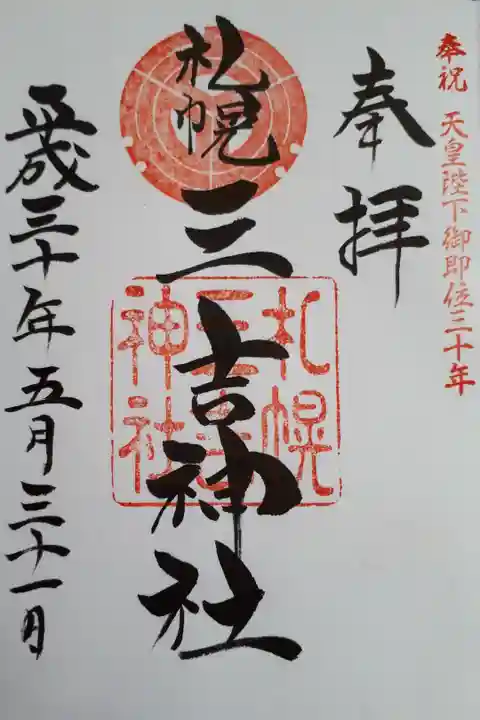 奉祝 天皇陛下御即位三十年
奉拝
札幌三吉神社
札幌
三吉
神社
平成三十年五月三十一日